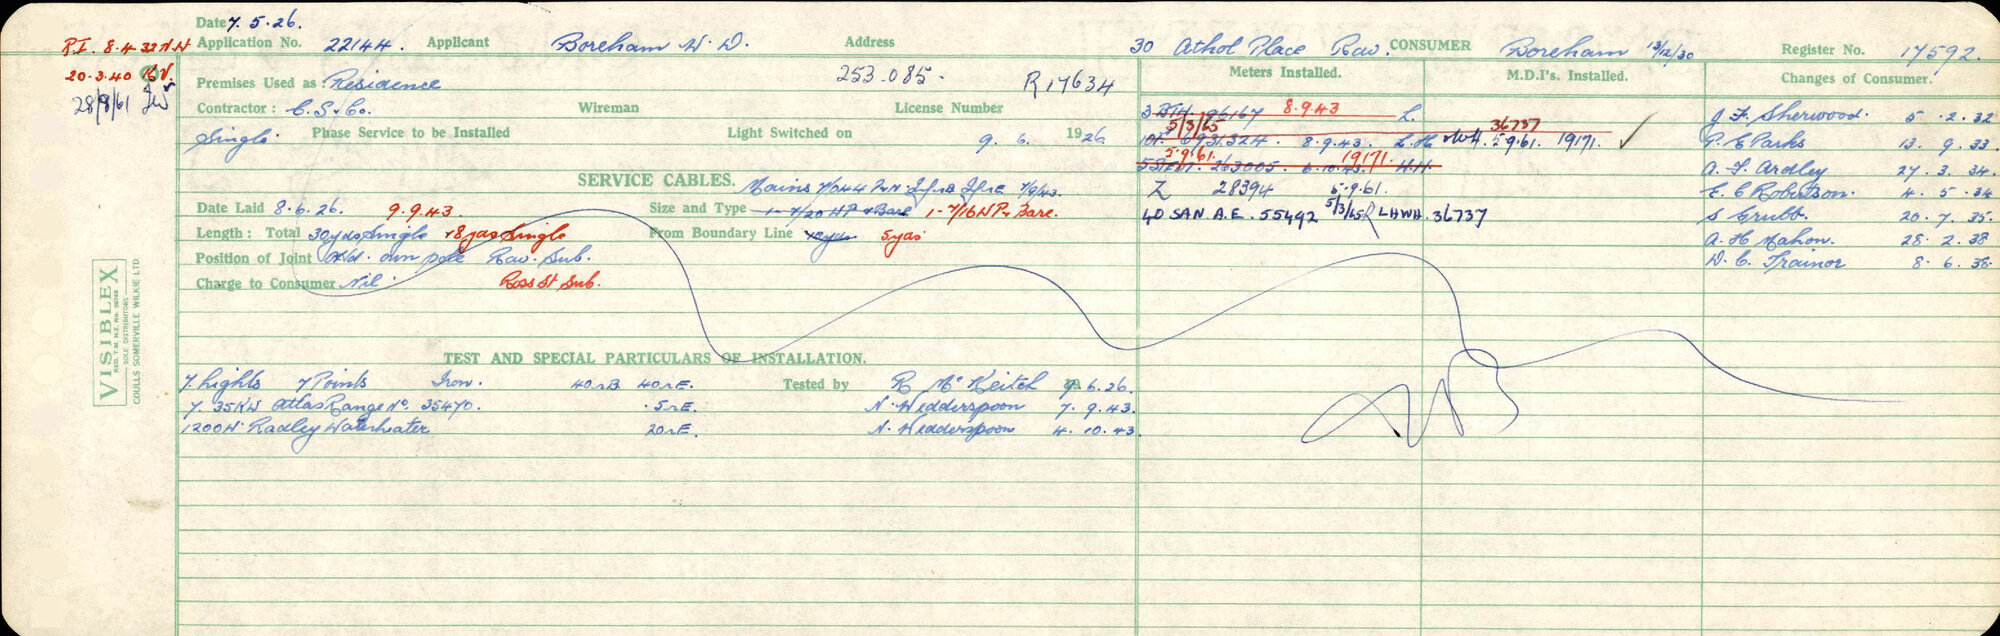 Date 7. 5. 26.
R.I. 8.4.32 Application No. 22144. Applicant Boreham W. D. Address 30 Athol Place Rav. CONSUMER Boreham 13/12/30 Register No. 17592.
20.3.40
28/8/61
Premises Used as: Residence 253.085. R17634 Meters Installed. M.D.I's. Installed. Changes of Consumer.
Contractor: C. S. & Co. Wireman License Number
Single Phase Service to be Installed Light Switched on 9. 6. 1926
3 BTH 86167 8.9.43 L. J. F. Sherwood. 5. 2. 32
5/3/65 36737
10A 6931324. 8.9.43. L.H. 5.9.61. 19171. ✓ P. E. Parks 13. 9. 33.
5.9.61. 19171.
263005. 6.10.43. H.H. A. F. Ardley 27. 3. 34.
Z 28394 5.9.61. E. C. Robertson. 4. 5. 34
40 SAN. A.E. 55492 5/3/65 LHWH. 36737 S Grubb. 20. 7. 35.
A. H. Mahon. 28. 2. 38
W. C. Trainor 8. 6. 38.
SERVICE CABLES. Mains 7/044
Date Laid 8.6.26. 9.9.43. Size and Type 1-7/20 HP & Bare 1-7/16 HP & Bare.
Length: Total 30yds Single 18yds Single From Boundary Line 5yds
Position of Joint O/hd. own pole Rav. Sub.
Charge to Consumer Nil Ross St Sub.
VISIBLEX
REG. T.M. N.Z. No.
SOLE DISTRIBUTORS
COULLS SOMERVILLE WILKIE LTD
TEST AND SPECIAL PARTICULARS OF INSTALLATION.
7. Lights 7 Points Iron. 40ΩB 40ΩE. Tested by R McKeitch 9.6.26.
7.35KW Atlas Range No. 35470. .5ΩE. N. Wedderspoon 7. 9. 43.
1200W Radley Waterheater 20ΩE. N. Wedderspoon 4. 10. 43